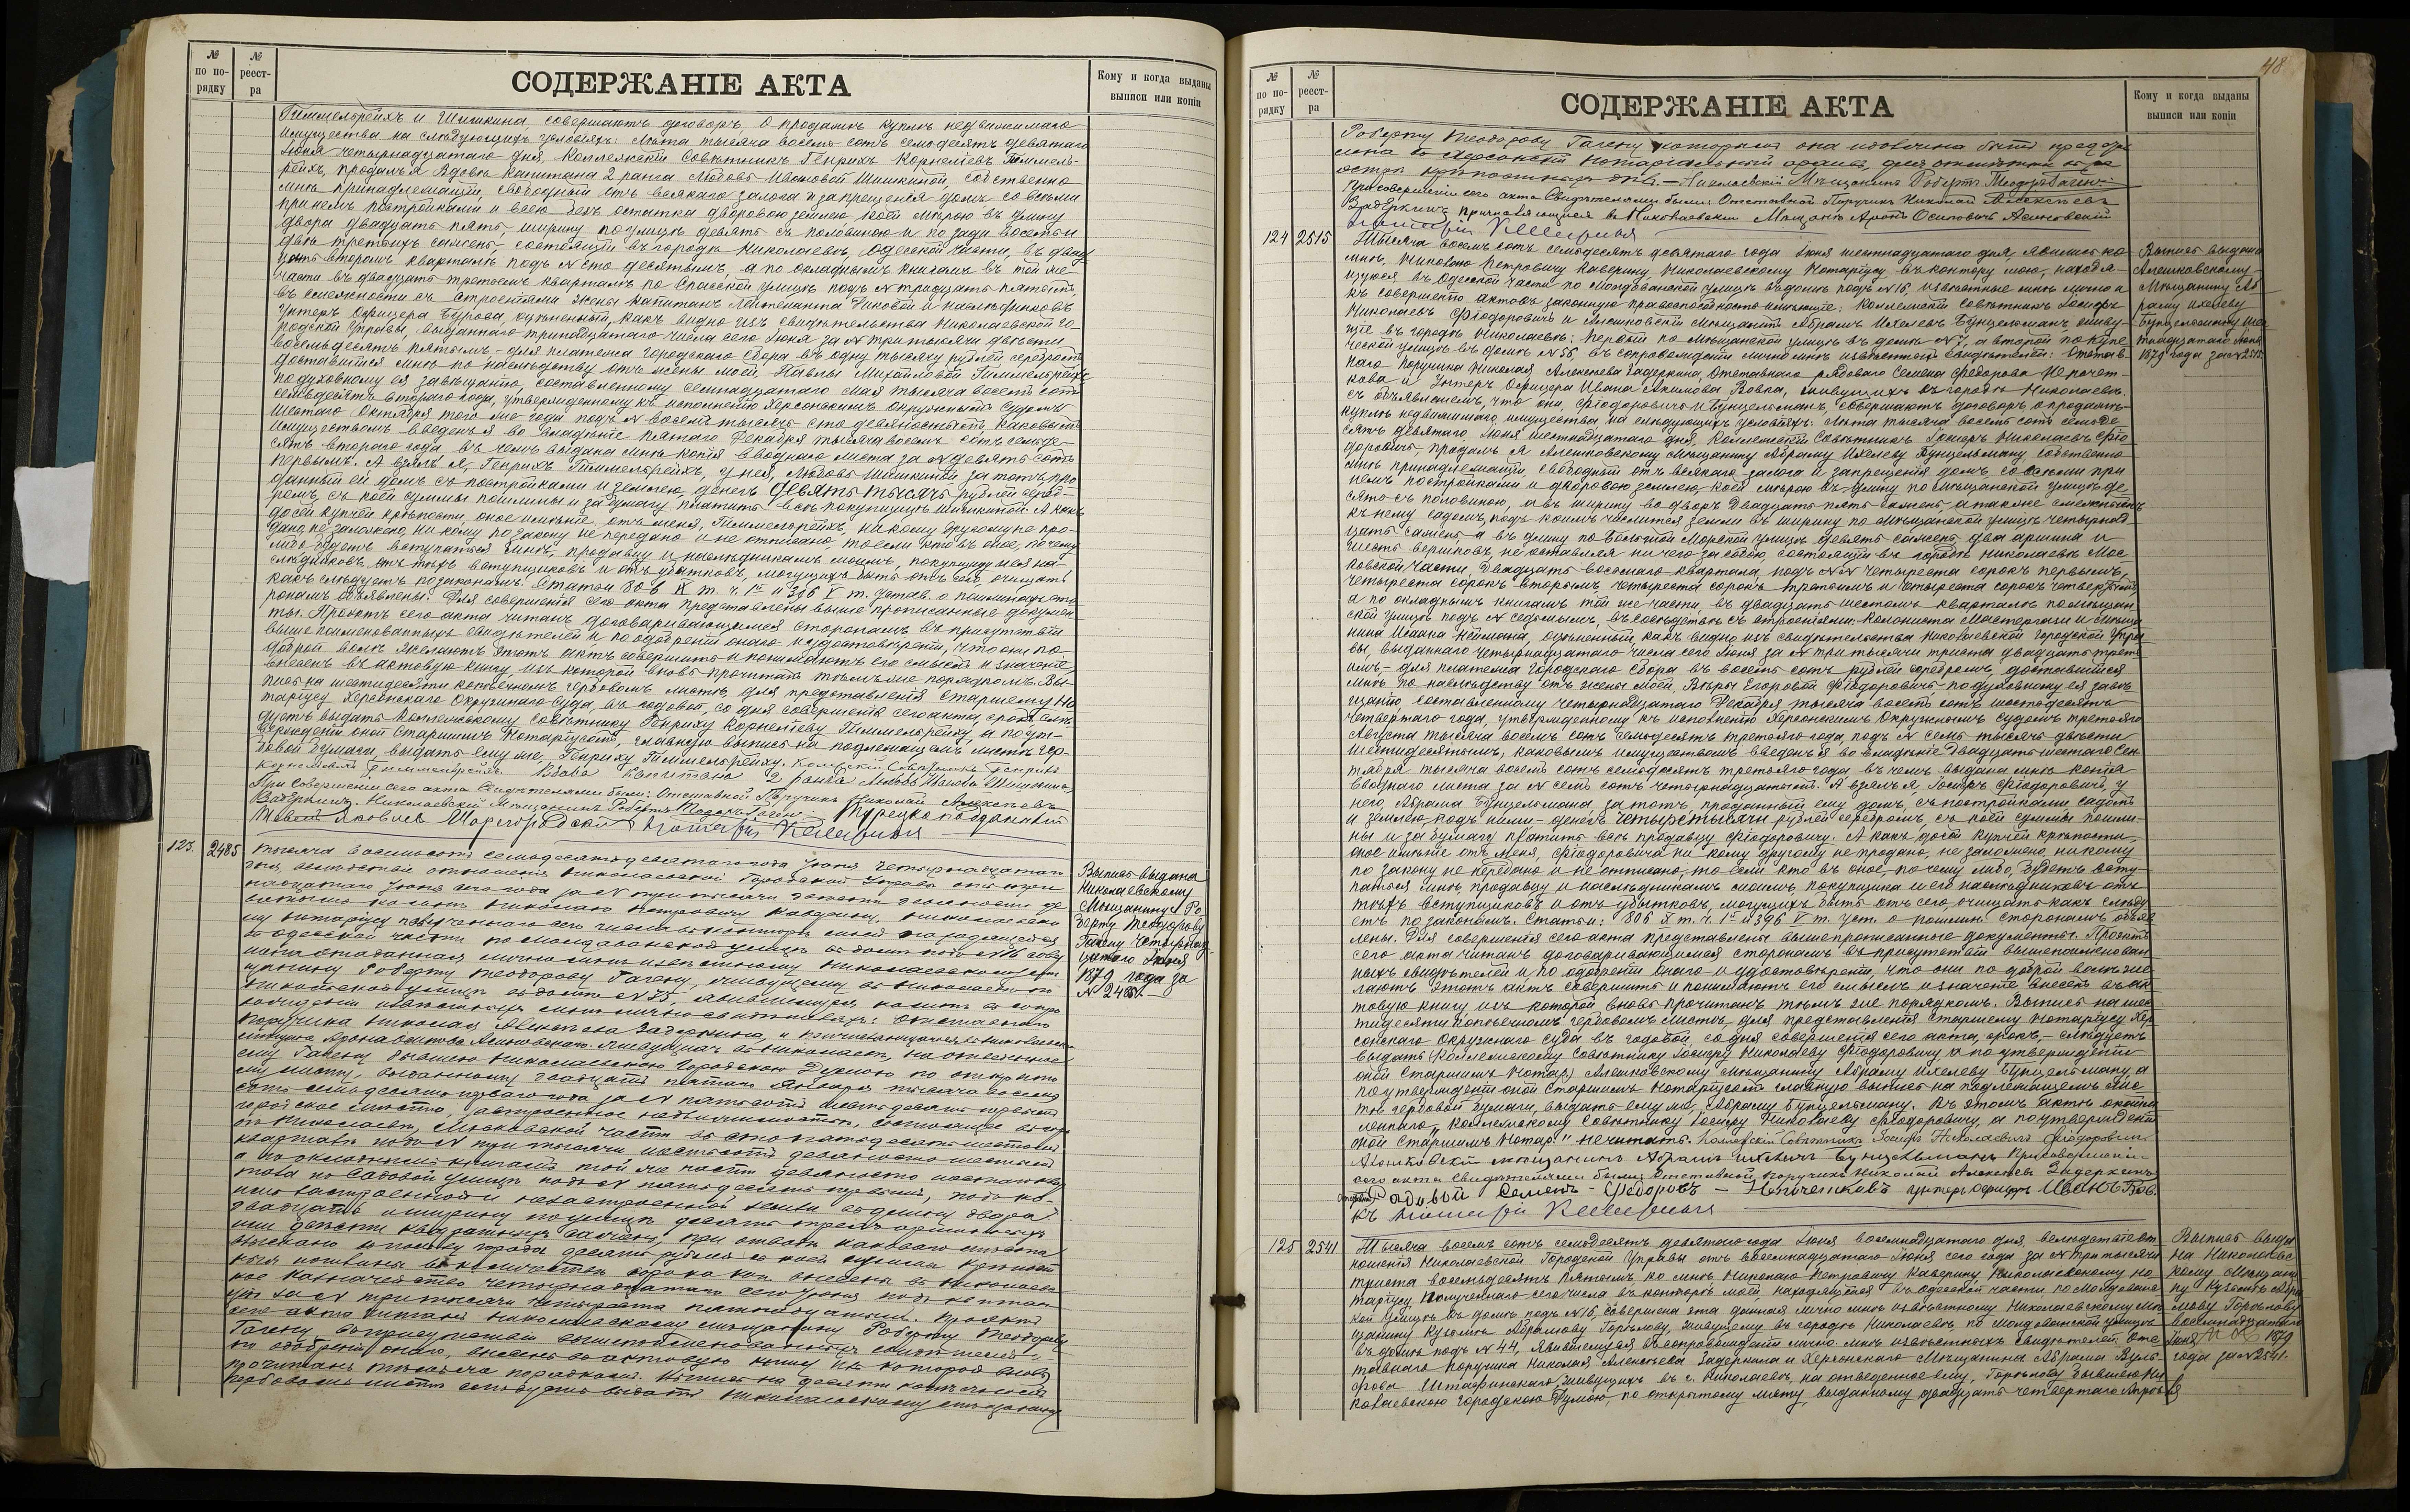 №
по по-
рядку
№
реест-
ра
СОДЕРЖАНІЕ АКТА
Кому и когда выданы
выписи или копіи
Гиммельрейхъ и Шишкина, совершаютъ договоръ, о продажѣ куплѣ недвижимаго
имущества на слѣдующихъ условіяхъ: Лѣта тысяча восемь сотъ семьдесятъ девятаго
Іюня четырнадцатаго дня, Коллежскій Совѣтникъ Генрихъ Корнеліевъ Гиммель-
рейхъ, продалъ я Вдовѣ Капитана 2 ранга Любовь Ивановой Шишкиной, собственно
мнѣ принадлежащій, свободный отъ всякаго залога и запрещенія домъ со всѣми
при немъ постройками и всею безъ остатка дворовою землею, коей мѣрою въ длину
двора двадцать пять, ширину по улицѣ девять съ половиною и по зади восемь и
двѣ третьихъ сажень, состоящій въ городѣ Николаевѣ, Одесской части, въ двад-
цать второмъ кварталѣ подъ № сто десятымъ, а по окладнымъ книгамъ въ той же
части въ двадцать третьемъ кварталѣ по Спасской улицѣ подъ № тридцать пятымъ
въ смежности съ строеніями жены Капитанъ Лейтенанта Чиковой и наслѣдниковъ
Унтеръ Офицера Бурова, оцѣненный, какъ видно изъ свидѣтельства Николаевской Го-
родской Управы, выданнаго тринадцатаго числа сего Іюня за № три тысячи двѣсти
восемьдесятъ пятымъ - для платежа городскаго сбора въ одну тысячу рублей серебромъ
доставшійся мнѣ по наслѣдству отъ жены моей Павлы Михайловой Гиммельрейхъ
по духовному ея завѣщанію, составленному семнадцатаго Мая тысяча восемь сотъ
семьдесятъ втораго года, утвержденному къ исполненію Херсонскимъ Окружнымъ Судомъ
шестаго Октября того же года подъ № восемь тысячъ сто девяностымъ, каковымъ
имуществомъ введенъ я во владѣніе пятаго Декабря тысяча восемь сотъ семьде-
сятъ втораго года, въ чемъ выдана мнѣ копія вводнаго листа за № девять сотъ
первымъ. А взялъ я, Генрихъ Гиммельрейхъ, у нея, Любовь Шишкиной за тотъ про
данный ей домъ съ постройками и землею, денегъ девять тысячъ рублей сереб-
ромъ, съ коей суммы пошлины и за бумагу платить всѣ покупщицѣ Шишкиной. А какъ
до сей купчей крѣпости, оное имѣніе, отъ меня, Гиммельрейхъ, никому другому не про
дано, не заложено, ни кому по закону не передано и не отписано, то если кто въ оное, почему
либо будетъ вступаться мнѣ, продавцу и наслѣдникамъ моимъ, покупщицу и ея на-
слѣдниковъ, отъ тѣхъ вступщиковъ и отъ убытковъ, могущихъ быть отъ сего, очищать
какъ слѣдуетъ по законамъ. Статьи 806 X т. ч. 1ой и 396 V т. Устав. о пошлинахъ сто
ронамъ объявлены. Для совершенія сего акта представлены выше прописанные докумен
ты. Проэктъ сего акта читанъ договаривающимся сторонамъ въ присутствіи
выше поименованныхъ свидѣтелей и по одобреніи онаго и удостовѣреніи, что они по
доброй волѣ желаютъ этотъ актъ совершить и понимаютъ его смыслъ и значеніе
внесенъ въ актовую книгу, изъ которой вновь прочитанъ тѣмъ же порядкомъ. Вы-
пись на шестидесяти копѣечномъ гербовомъ листѣ, для представленія Старшему Но
таріусу Херсонскаго Окружнаго Суда, въ годовой, со дня совершенія сего акта, срокъ слѣ-
дуетъ выдать Коллежскому Совѣтнику Генриху Корнеліеву Гиммельрейху, а по ут-
вержденіи оной Старшимъ Нотаріусомъ, главную выпись на подлежащемъ листѣ гер-
бовой бумаги, выдать ему же, Генриху Гиммельрейху. Коллежскій Совѣтникъ Генрихъ
Корнеліевъ Гиммельрейхъ. Вдова Капитана 2 ранга Любовь Иванова Шишкина.
При совершеніи сего акта Свидѣтелями были: Отставной Поручикъ Николай Алексѣевъ
Задеркинъ. Николаевскій Мѣщанинъ Робертъ Теодоръ Гагенъ. Турецко подданный
Яковлев Шаргородскій Нотаріусъ Каверинъ
123. 2485 Тысяча восемьсотъ семьдесятъ девятаго года Іюня четырнадцатаго
дня, вслѣдствіе отношенія Николаевской Городской Управы отъ три
надцатаго Іюня сего года за № три тысячи двѣсти
Николаю Петровичу Каверину, Николаевско
му Нотаріусу полученнаго сего числа въ конторѣ моей находящейся
въ Одесской части по Молдаванской улицѣ въ домѣ подъ № 16, совер
шена эта данная лично мнѣ извѣстному Николаевскому мѣ
щанину Роберту Теодорову Гагену, живущему въ Николаевѣ по
Никольской улицѣ въ домѣ № 75, явившемуся ко мнѣ въ сопро
вожденіи извѣстныхъ мнѣ лично свидѣтелей: Отставнаго
Поручика Николая Алексѣева Задеркина, и причисляющагося къ Николаевскимъ
мѣщанамъ Арона Осипова Асиновскаго живущихъ въ Николаевѣ, на отведенное
ему Гагену бывшею Николаевскою Городскою Думою по открыто
му листу, выданному двадцать пятаго Января тысяча восемь
сотъ семьдесятъ перваго года за № пятьсотъ
городское мѣсто, застроенное недвижимостью, состоящее въ горо
дѣ Николаевѣ, Московской части въ сто пятьдесятъ шестомъ
кварталѣ подъ № три тысячи шестьсотъ девяносто шестымъ
а по окладнымъ книгамъ той же части девяносто
по Садовой улицѣ подъ № пятьдесятъ первымъ, подъ ко-
имъ застроенной и незастроенной земли въ длину двора
двадцать и ширину по улицѣ десять
или двѣсти квадратныхъ сажень, при отводѣ каковаго мѣста
взыскано въ пользу города десять рублей съ коей суммы крѣпост
ныя пошлины въ количествѣ сорока коп. внесены въ Николаевс
кое Казначейство четырнадцатаго сего Іюня подъ квитан
цію за № три тысячи четыреста пятнадцатымъ. Проэктъ
сего акта читанъ Николаевскому мѣщанину Роберту Теодорову
Гагену, въ присутствіи вышепоименованныхъ свидѣтелей и
по одобреніи онаго, внесенъ въ актовую книгу изъ которой вновь
прочитанъ тѣмъ же порядкомъ. Выпись на десяти копѣечномъ
гербовомъ листѣ слѣдуетъ выдать Николаевскому мѣщанину
Выпись выдана
Николаевскому
Мѣщанину Ро
берту Теодорову
Гагену четырнад-
цатаго Іюня
1879 года за
№ 2485.
48
№
по по-
рядку
№
реест-
ра
СОДЕРЖАНІЕ АКТА
Кому и когда выданы
выписи или копіи
Роберту Теодорову Гагену которая она
лена въ Херсонскій Нотаріальный архивъ, для отмѣтки въ ре
естрѣ крѣпостныхъ дѣлъ. - Николаевскій Мѣщанинъ Робертъ Теодоръ Гагенъ.
При совершеніи сего акта Свидѣтелями были: Отставной Поручикъ Николай Алексѣевъ
Задеркинъ, причисляющійся въ Николаевскіе Мѣщане Аронъ Осиповичъ Асиновскій
Нотаріусъ Каверинъ
124 2515 Тысяча восемь сотъ семьдесятъ девятаго года Іюня шестнадцатаго дня, явились ко
мнѣ, Николаю Петровичу Каверину, Николаевскому Нотаріусу, въ контору мою, находя-
щуюся въ Одесской части по Молдаванской улицѣ въ домѣ подъ № 16, извѣстные мнѣ лично и
къ совершенію актовъ законную правоспособность имѣющіе: Коллежскій Совѣтникъ Іосифъ
Николаевъ Фіодоровичъ и Алешковскій Мѣщанинъ Абрамъ Ихелевъ Бунцельманъ, живу-
щіе въ городѣ Николаевѣ: первый по Мѣщанской улицѣ въ домѣ № 7, а второй по Купе
ческой улицѣ въ домѣ № 56, въ сопровожденіи лично мнѣ извѣстныхъ свидѣтелей: Отстав-
наго Поручика Николая Алексѣева Задеркина, Отставнаго рядоваго Семена Федорова Непочет-
кова и Унтеръ Офицера Ивана Акимова Вовка, живущихъ въ городѣ Николаевѣ,
съ объявленіемъ, что они, Фіодоровичъ и Бунцельманъ, совершаютъ договоръ, о продажѣ-
куплѣ недвижимаго имущества на слѣдующихъ условіяхъ: Лѣта тысяча восемь сотъ семьде
сятъ девятаго Іюня шестнадцатаго дня, Коллежскій Совѣтникъ Іосифъ Николаевъ Фіо
доровичъ, продалъ я Алешковскому Мѣщанину Абраму Ихелеву Бунцельману собственно
мнѣ принадлежащій свободный отъ всякаго залога и запрещенія домъ, со всѣми при
немъ постройками и дворовою землею, коей мѣрою въ длину по Мѣщанской улицѣ де
сять съ половиною, а въ ширину во дворъ двадцать пять сажень, а также смежнымъ
къ нему садомъ, подъ коимъ числится земли въ ширину по Мѣщанской улицѣ четырнад
цать сажень, а въ длину по Большой Морской улицѣ девять сажень два аршина и
шесть вершковъ, не оставляя ничего за собою, состоящій въ городѣ Николаевѣ Мос
ковской части, двадцать восьмаго квартала, подъ №№ четыреста сорокъ первымъ,
четыреста сорокъ вторымъ, четыреста сорокъ третьимъ и четыреста сорокъ четвертымъ,
а по окладнымъ книгамъ той же части, въ двадцать шестомъ кварталѣ по Мѣщан
ской улицѣ подъ № седьмымъ, въ сосѣдствѣ съ строеніями Колониста Мастергази и Мѣща
нина Исаака Неймана, оцѣненный, какъ видно изъ свидѣтельства Николаевской Городской Упра
вы, выданнаго четырнадцатаго числа сего Іюня за № три тысячи триста двадцать треть
имъ - для платежа городскаго сбора въ восемь сотъ рублей серебромъ, доставшійся
мнѣ по наслѣдству отъ жены моей, Вѣры Егоровой Фіодоровичъ - по духовному ея завѣ
щанію, составленному четырнадцатаго Декабря тысяча восемь сотъ шестьдесятъ
четвертаго года, утвержденному къ исполненію Херсонскимъ Окружнымъ Судомъ третьяго
Августа тысяча восемь сотъ семьдесятъ третьяго года, подъ № семь тысячъ двѣсти
шестидесятымъ, каковымъ имуществомъ введенъ я во владѣніе двадцать шестаго Сен
тября тысяча восемь сотъ семьдесятъ третьяго года въ чемъ выдана мнѣ копія
вводнаго листа за № семь сотъ четырнадцатымъ. А взялъ я, Іосифъ Фіодоровичъ, у
него, Абрама Бунцельмана, за тотъ, проданный ему домъ, съ постройками садомъ
и землею подъ ними - денегъ четыре тысячи рублей серебромъ, съ коей суммы пошли-
ны и за бумагу платить всѣ продавцу Фіодоровичу. А какъ до сей купчей крѣпости,
оное имѣніе отъ меня, Фіодоровича ни кому другому не продано, не заложено, никому
по закону не передано и не отписано, то если кто въ оное, по чему либо, будетъ всту-
паться мнѣ, продавцу и наслѣдникамъ моимъ, покупщика и его наслѣдниковъ отъ
тѣхъ вступщиковъ и отъ убытковъ, могущихъ быть отъ сего, очищать какъ слѣду
етъ по законамъ. Статьи: 806 X т. ч. 1ой и 396 V т. Уст. о пошлин. сторонамъ объяв
лены. Для совершенія сего акта представлены вышепрописанные документы. Проэктъ
сего акта читанъ договаривающимся сторонамъ въ присутствіи вышепоименован
ныхъ свидѣтелей и по одобреніи онаго и удостовѣреніи, что они по доброй волѣ же
лаютъ этотъ актъ совершить и понимаютъ его смыслъ и значеніе внесенъ въ ак
товую книгу изъ которой вновь прочитанъ тѣмъ же порядкомъ. Выпись на шес
тидесяти копѣечномъ гербовомъ листѣ, для представленія Старшему Нотаріусу Хер
сонскаго Окружнаго Суда въ годовой, со дня совершенія сего акта, срокъ, - слѣдуетъ
выдать Коллежскому Совѣтнику Іосифу Николаеву Фіодоровичу а по утвержденіи
оной Старшимъ Нотар) Алешковскому Мѣщанину Абраму Ихелеву Бунцельману, а
по утвержденіи оной Старшимъ Нотаріусомъ главную выпись на подлежащемъ лис
тѣ гербовой бумаги, выдать ему же, Абраму Бунцельману. Въ этомъ актѣ
„Коллежскому Совѣтнику Іосифу Николаеву Фіодоровичу, а по утвержденіи
оной Старшимъ Нотар." не читать. Коллежскій Совѣтникъ Іосифъ Николаевичъ Фіодоровичъ
Алешковскій мѣщанинъ Абрамъ Ихелевъ Бунцельманъ При совершеніи
сего акта Свидѣтелями были: Отставной поручикъ Николай Алексѣевъ Задеркинъ
Отставной Рядовой Семенъ - Федоровъ - Непочетковъ Унтеръ офицеръ Иванъ Вов.
къ Нотаріусъ Каверинъ
Выпись выдана
Алешковскому
Мѣщанину Аб
раму Ихелеву
Бунцельману шес
тнадцатаго Іюня
1879 года за № 2515.
125 2541 Тысяча восемь сотъ семьдесятъ девятаго года Іюня восемнадцатаго дня, вслѣдствіе от
ношенія Николаевской Городской Управы отъ восемнадцатаго Іюня сего года за № три тысячи
триста восемьдесятъ пятымъ, ко мнѣ, Николаю Петровичу Каверину, Николаевскому Но
таріусу полученнаго сего числа въ конторѣ моей находящейся въ Одесской части по Молдаванс
кой улицѣ въ домѣ подъ № 16, совершена эта данная лично мнѣ извѣстному Николаевскому мѣ
щанину Кузьмѣ Абрамову Горѣлову, живущему въ городѣ Николаевѣ, по Молдаванской улицѣ
въ домѣ подъ № 44, явившемуся въ сопровожденіи лично мнѣ извѣстныхъ свидѣтелей: Отс
тавнаго Поручика Николая Алексѣева Задеркина и Херсонскаго Мѣщанина Абрама Вуль-
фова Штафинскаго, живущихъ въ г. Николаевѣ, на отведенное ему, Горѣлову бывшею Ни
колаевскою Городскою Думою, по открытому листу, выданному двадцать четвертаго Апрѣля
Выпись выда
на Николаевс
кому Мѣщани
ну Кузьмѣ Абра
мову Горѣлову
восемнадцатаго
Іюня 1879
года за № 2541.